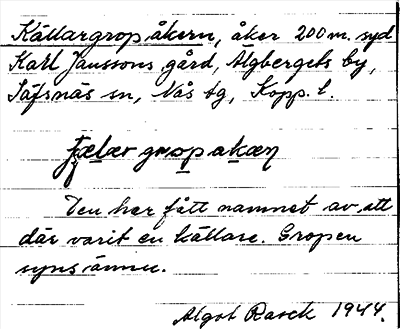 Källargropåkern, åker 200 m. syd
Karl Janssons gård, Älgbergets by,
Säfsnäs sn, Nås tg, Kopp. l.
grop
Den har fått namnet av, att
där varit en källare. Gropen
syns ännu.
Algot Rasck 1944.